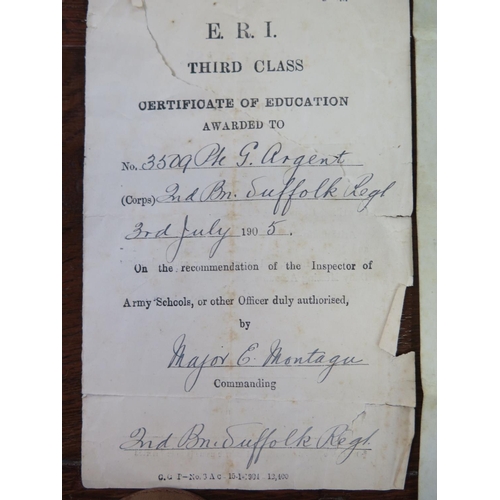 E. R. I.
THIRD CLASS
CERTIFICATE OF EDUCATION
AWARDED TO
No. 3509 Pte G. Argent
(Corps) 2nd Bn. Suffolk Regt
3rd July 1905.
On the recommendation of the Inspector of
Army Schools, or other Officer duly authorised,
by
Major E. Montagu
Commanding
2nd Bn. Suffolk Regt.